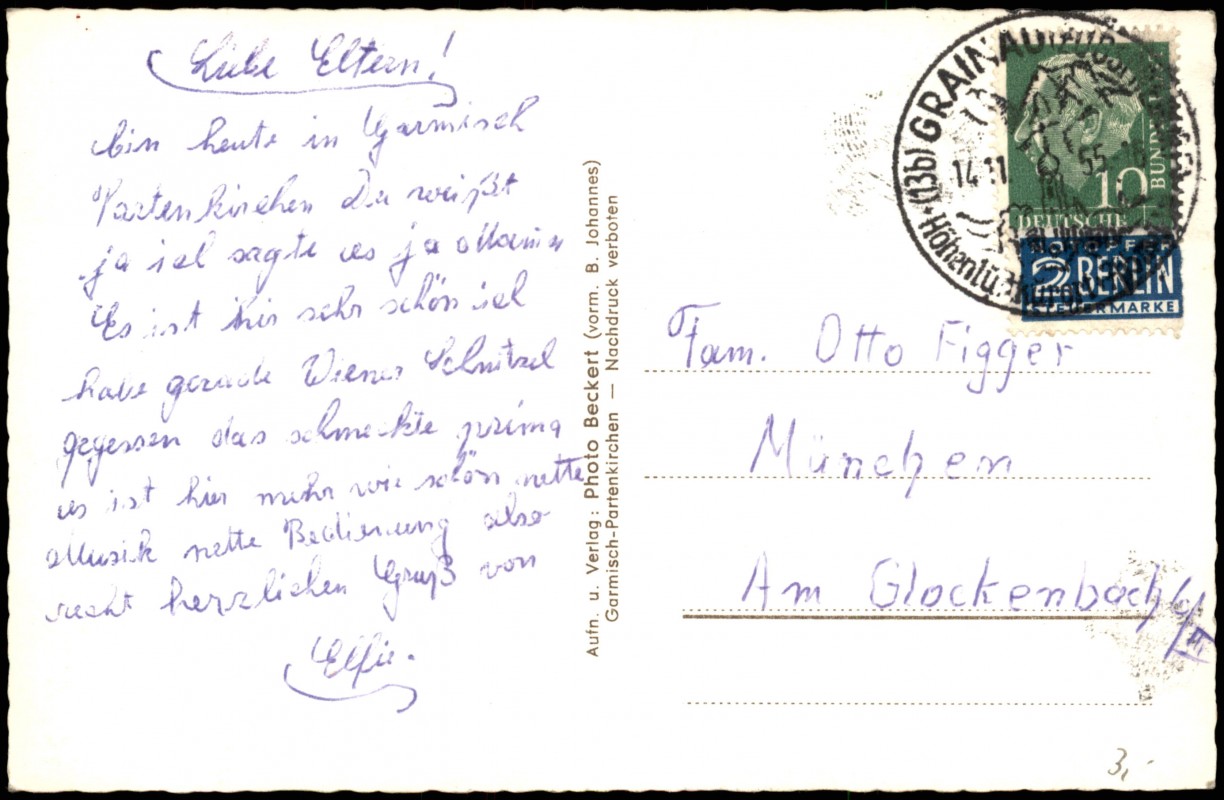 Liebe Eltern!
bin heute in Garmisch
Partenkirchen Du weißt
ja ich sagte es ja Mama
Es ist hier sehr schön ich
habe gerade Wiener Schnitzel
gegessen das schmeckte prima
es ist hier mehr wie schön nette
Musik nette Bedienung also
recht herzlichen Gruß von
Elfie.
Aufn. u. Verlag: Photo Beckert (vorm. B. Johannes)
Garmisch-Partenkirchen — Nachdruck verboten
(13b) GRAINAU
14.11. 55
Höhenluftkurort
10
DEUTSCHE
BUNDESPOST
2 BERLIN
STEUERMARKE
Fam. Otto Figger
München
Am Glockenbach
3,-